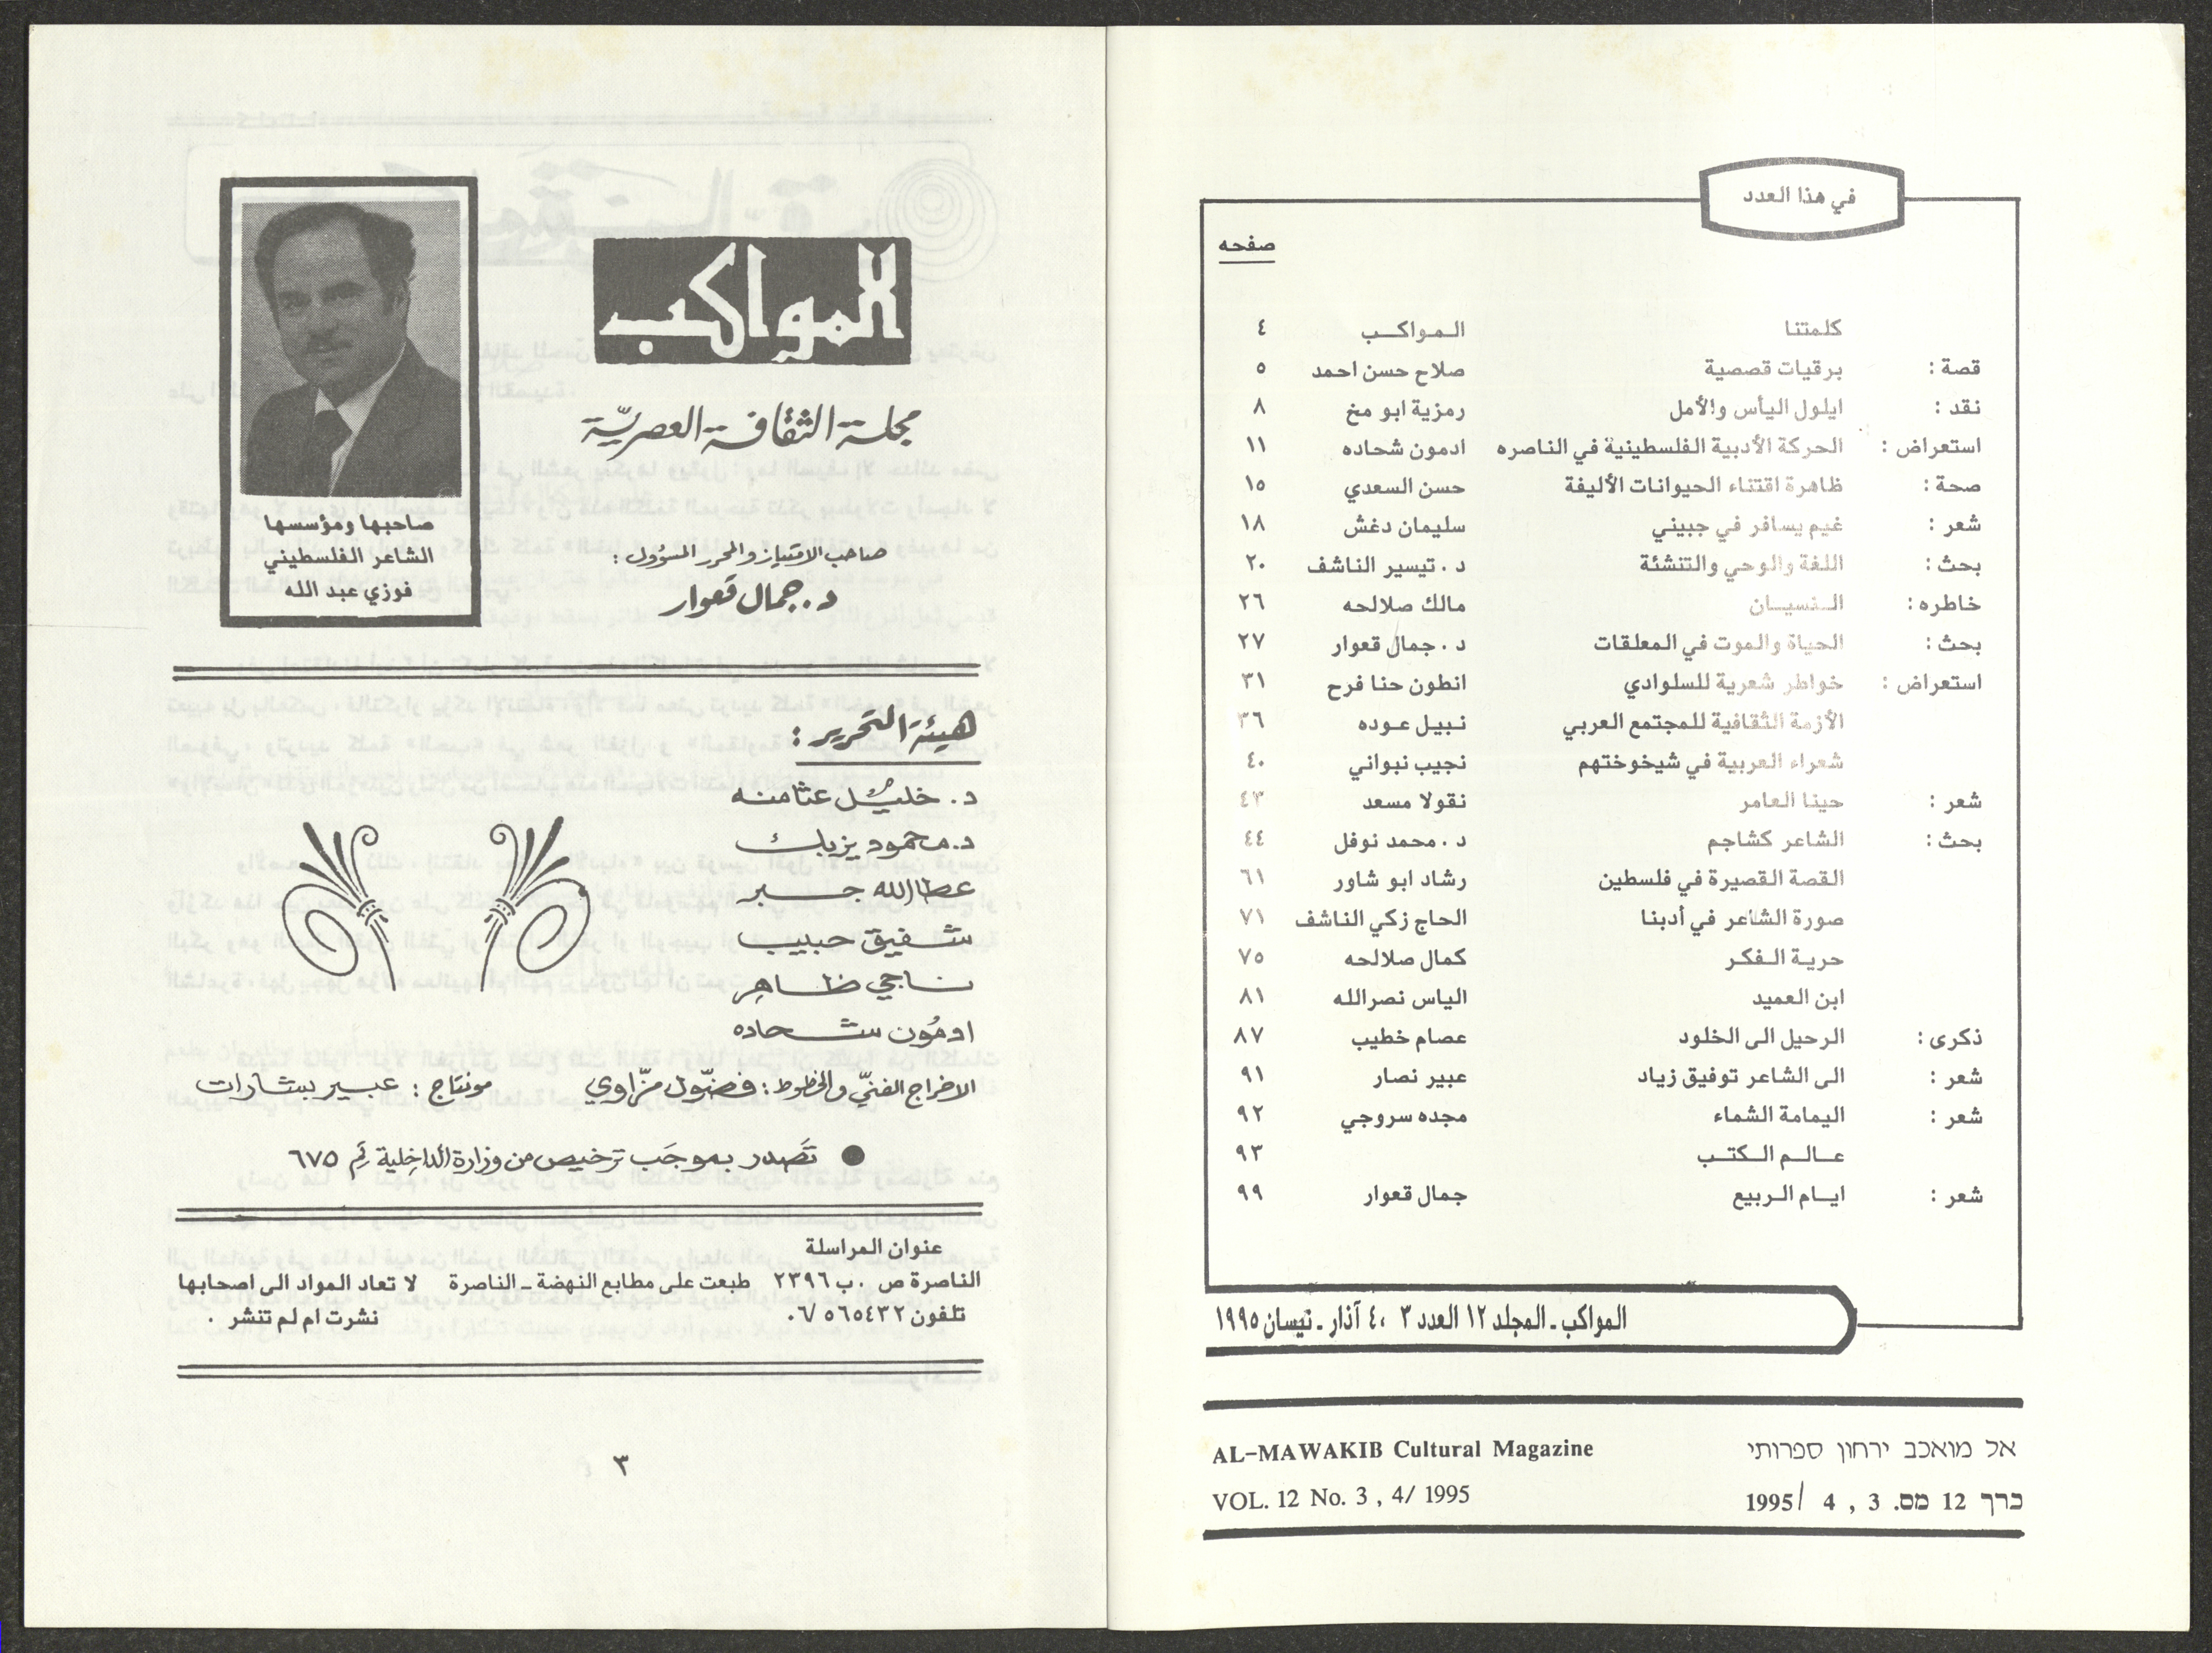 في هذا العدد
صفحه
كلمتنا المواكب ٤
قصة : برقيات قصصية صلاح حسن احمد ٥
نقد : ايلول اليأس والأمل رمزية ابو مخ ٨
استعراض : الحركة الأدبية الفلسطينية في الناصره ادمون شحاده ١١
صحة : ظاهرة اقتناء الحيوانات الأليفة حسن السعدي ١٥
شعر : غيم يسافر في جبيني سليمان دغش ١٨
بحث : اللغة والوحي والتنشئة د . تيسير الناشف ٢٠
خاطره : النسيان مالك صلالحه ٢٦
بحث : الحياة والموت في المعلقات د . جمال قعوار ٢٧
استعراض : خواطر شعرية للسلوادي انطون حنا فرح ٣١
الأزمة الثقافية للمجتمع العربي نبيل عوده ٣٦
شعراء العربية في شيخوختهم نجيب نبواني ٤٠
شعر : حينا العامر نقولا مسعد ٤٣
بحث : الشاعر كشاجم د . محمد نوفل ٤٤
القصة القصيرة في فلسطين رشاد ابو شاور ٦١
صورة الشاعر في أدبنا الحاج زكي الناشف ٧١
حرية الفكر كمال صلالحه ٧٥
ابن العميد الياس نصرالله ٨١
ذكرى : الرحيل الى الخلود عصام خطيب ٨٧
شعر : الى الشاعر توفيق زياد عبير نصار ٩١
شعر : اليمامة الشماء مجده سروجي ٩٢
عالم الكتب ٩٣
شعر : ايام الربيع جمال قعوار ٩٩
المواكب ـ المجلد ١٢ العدد ٣ ،٤ آذار ـ نيسان ١٩٩٥
אל מואכב ירחון ספרותי
AL-MAWAKIB Cultural Magazine
כרך 12 מס. 3 , 4 /1995
VOL. 12 No. 3 , 4/ 1995
المواكب
مجلة الثقافة العصريّة
صاحبها ومؤسسها
الشاعر الفلسطيني
فوزي عبد الله
صاحب الامتياز والمحرر المسؤول :
د. جمال قعوار
هيئة التحرير :
د. خليل عثامنه
د. محمود يزبك
عطاالله جبر
شفيق حبيب
ناجي ظاهر
ادمُون شحاده
الاخراج الفنيّ والخطوط : فضّول مزّاوي مونتاج : عبير بشارات
● تَصدر بموجَب ترخيص من وزارة الداخلية رقم ٦٧٥
عنوان المراسلة
الناصرة ص . ب ٢٣٩٦ طبعت على مطابع النهضة ـ الناصرة لا تعاد المواد الى اصحابها
تلفون ٥٦٥٤٣٢ /٠٦ نشرت ام لم تنشر .
٣